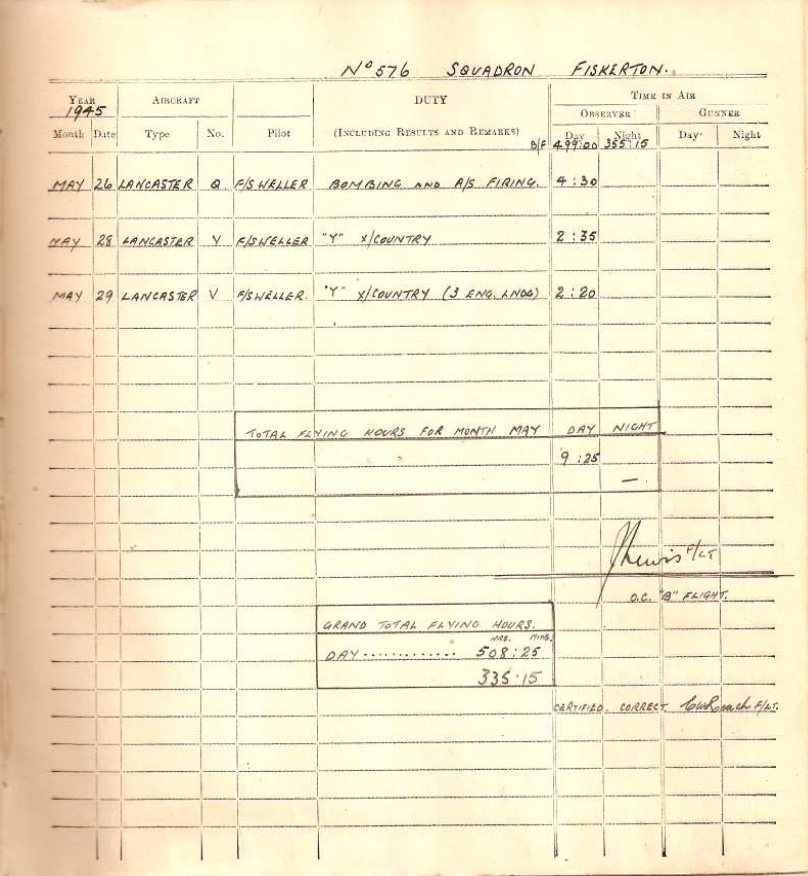 Nº 576 SQUADRON FISKERTON.
YEAR AIRCRAFT DUTY TIME IN AIR
1945 OBSERVER GUNNER
Month Date Type No. Pilot (INCLUDING RESULTS AND REMARKS) Day Night Day Night
B/F 499:00 355:15
MAY 26 LANCASTER Q F/S WELLER BOMBING AND A/S FIRING. 4:30
MAY 28 LANCASTER V F/S WELLER "Y" X/COUNTRY 2:35
MAY 29 LANCASTER V F/S WELLER. "Y" X/COUNTRY (3 ENG. LNDG) 2:20
TOTAL FLYING HOURS FOR MONTH MAY DAY NIGHT
9:25
—
JLewis F/LT
O.C. "B" FLIGHT.
GRAND TOTAL FLYING HOURS.
HRS. MINS.
DAY............. 508:25
335·15
CERTIFIED. CORRECT. F/LT.